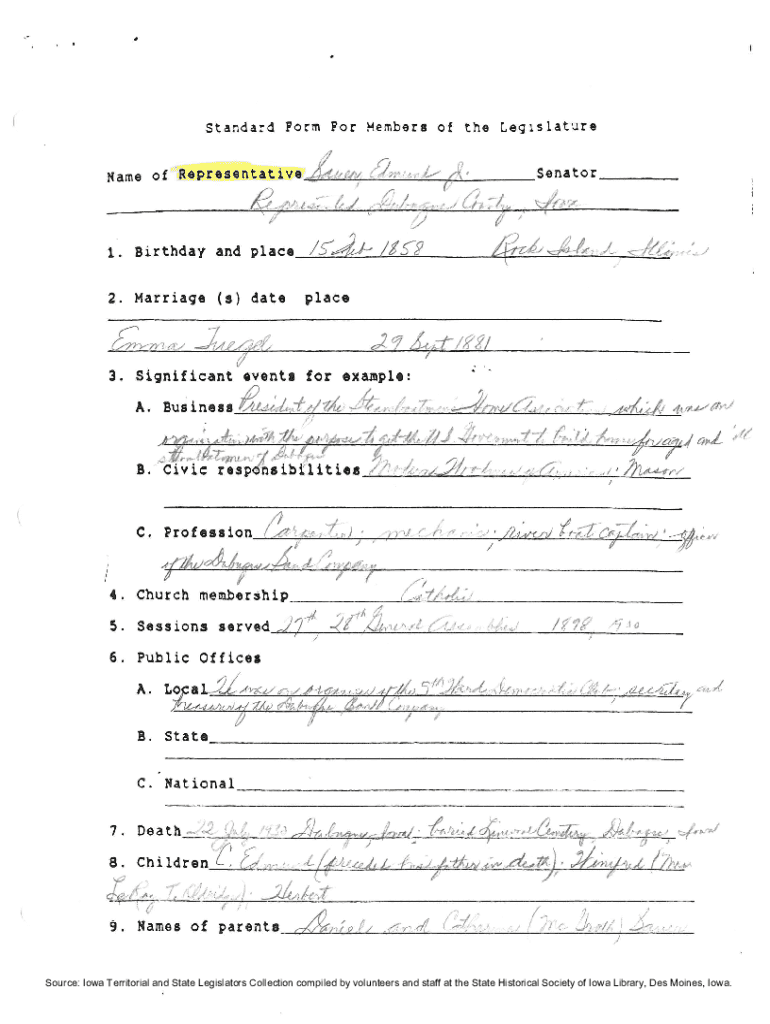 Standard Form For Members of the Legislature
Name of Representative Edmund Jr. Senator
Represented Dubuque County, Iowa
1. Birthday and place 15 Feb 1858 Rock Island, Illinois
2. Marriage (s) date place
Emma 29 Sept 1881
3. Significant events for example:
A. Business President of the Steamboatmen's Home Association, which was an
organization with the purpose to get the U.S. Government to build homes for aged and ill
steamboatmen of Dubuque
B. Civic responsibilities Modern Woodmen of America; Mason
C. Profession Carpenter; mechanic; river boat captain; officer
of the Dubuque Sand Company
4. Church membership Catholic
5. Sessions served 27th, 28th General Assemblies 1898, 1900
6. Public Offices
A. Local He was an organizer of the 5th Ward Democratic Club; secretary and
treasurer of the Dubuque Sand Company
B. State
C. National
7. Death 22 July Dubuque, Iowa; buried Linwood Cemetery, Dubuque, Iowa
8. Children C. Edmund (preceded his father in death); Winifred (Mrs
LeRoy T. ); Herbert
9. Names of parents Daniel and Catherine (Mc Grath)
Source: Iowa Territorial and State Legislators Collection compiled by volunteers and staff at the State Historical Society of Iowa Library, Des Moines, Iowa.